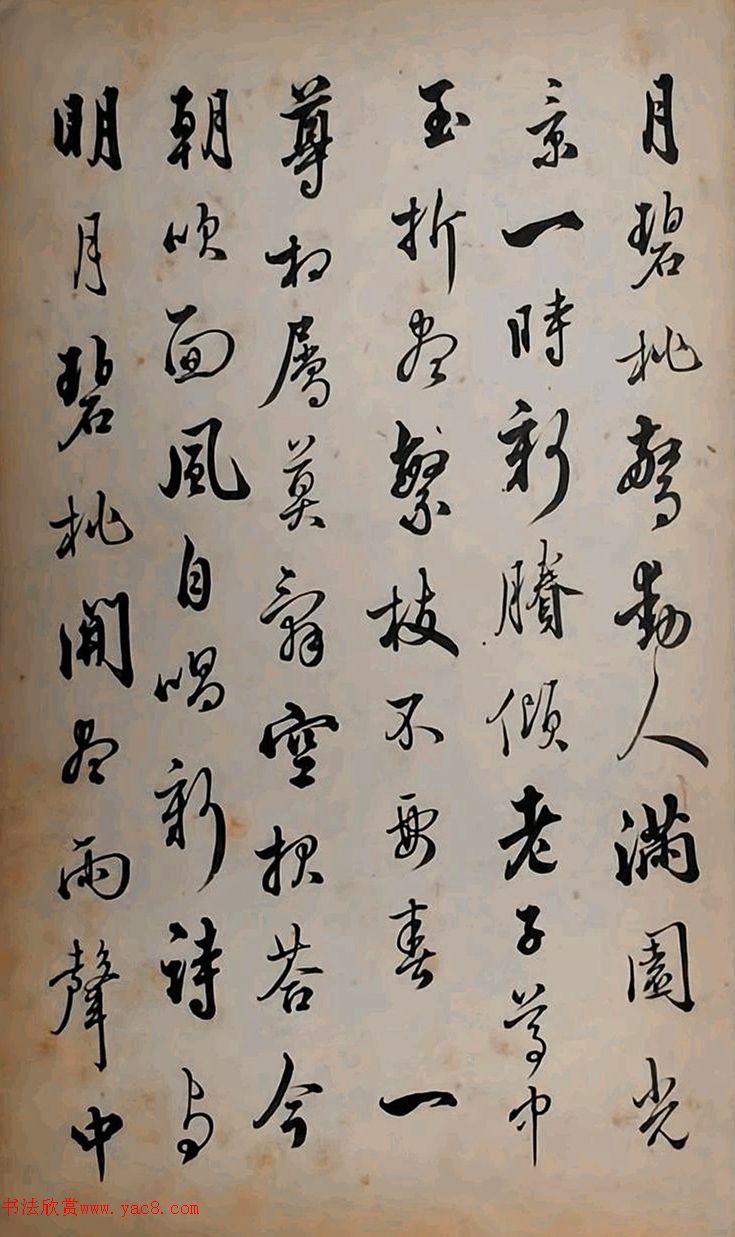 月碧桃驚動人滿園光
景一時新賸傾老子尊中
玉折盡繁枝不要春 一
尊相屬莫辭空報答今
朝吹面風自唱新詩与
明月碧桃開盡雨聲中
书法欣赏www.yac8.com